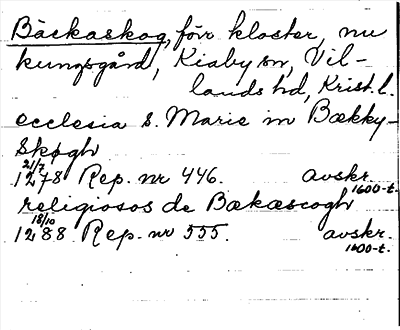 Bäckaskog, förr kloster, nu
kungsgård, Kiaby sn, Vil-
lands hd, Krist. l.
ecclesia S. Marie in Bækky-
skogh
21/7
1278 Rep. nr 446. avskr.
1600-t.
religiosos de Bækæscogh
18/10
1288 Rep. nr 555. avskr.
1600-t.